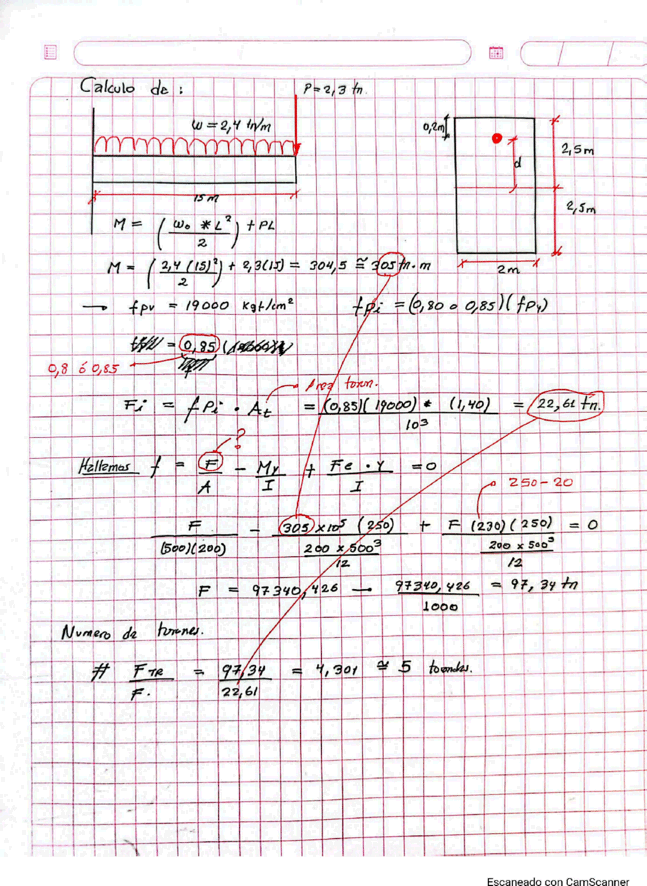 Calculo de :
P = 2,3 tn.
w = 2,4 tn/m
15 m
0,2m
d
2,5m
2,5m
2m
M = ( w₀ * L² / 2 ) + PL
M = ( 2,4 (15)² / 2 ) + 2,3(15) = 304,5 ≅ 305 tn·m
→ fpv = 19000 kgf/cm²
fpi = (0,80 o 0,85)(fpy)
= 0,85 (
0,8 ó 0,85
Area toron.
Fi = fpi · At = (0,85)(19000) * (1,40) / 10³ = 22,61 tn.
?
Hallamos f = F/A - My/I + Fe · Y/I = 0
250 - 20
F / (500)(200) - 305 x10⁵ (250) / (200 x 500³ / 12) + F (230)(250) / (200 x 500³ / 12) = 0
F = 97340,426 — 97340,426 / 1000 = 97,34 tn
Numero de torones.
# F TR / F. = 97,34 / 22,61 = 4,301 ≅ 5
Escaneado con CamScanner